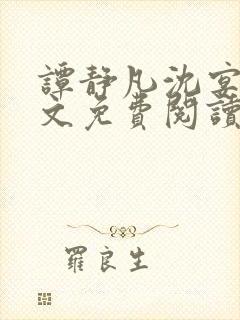 譚靜凡沈宴
文免費閱讀
羅良生